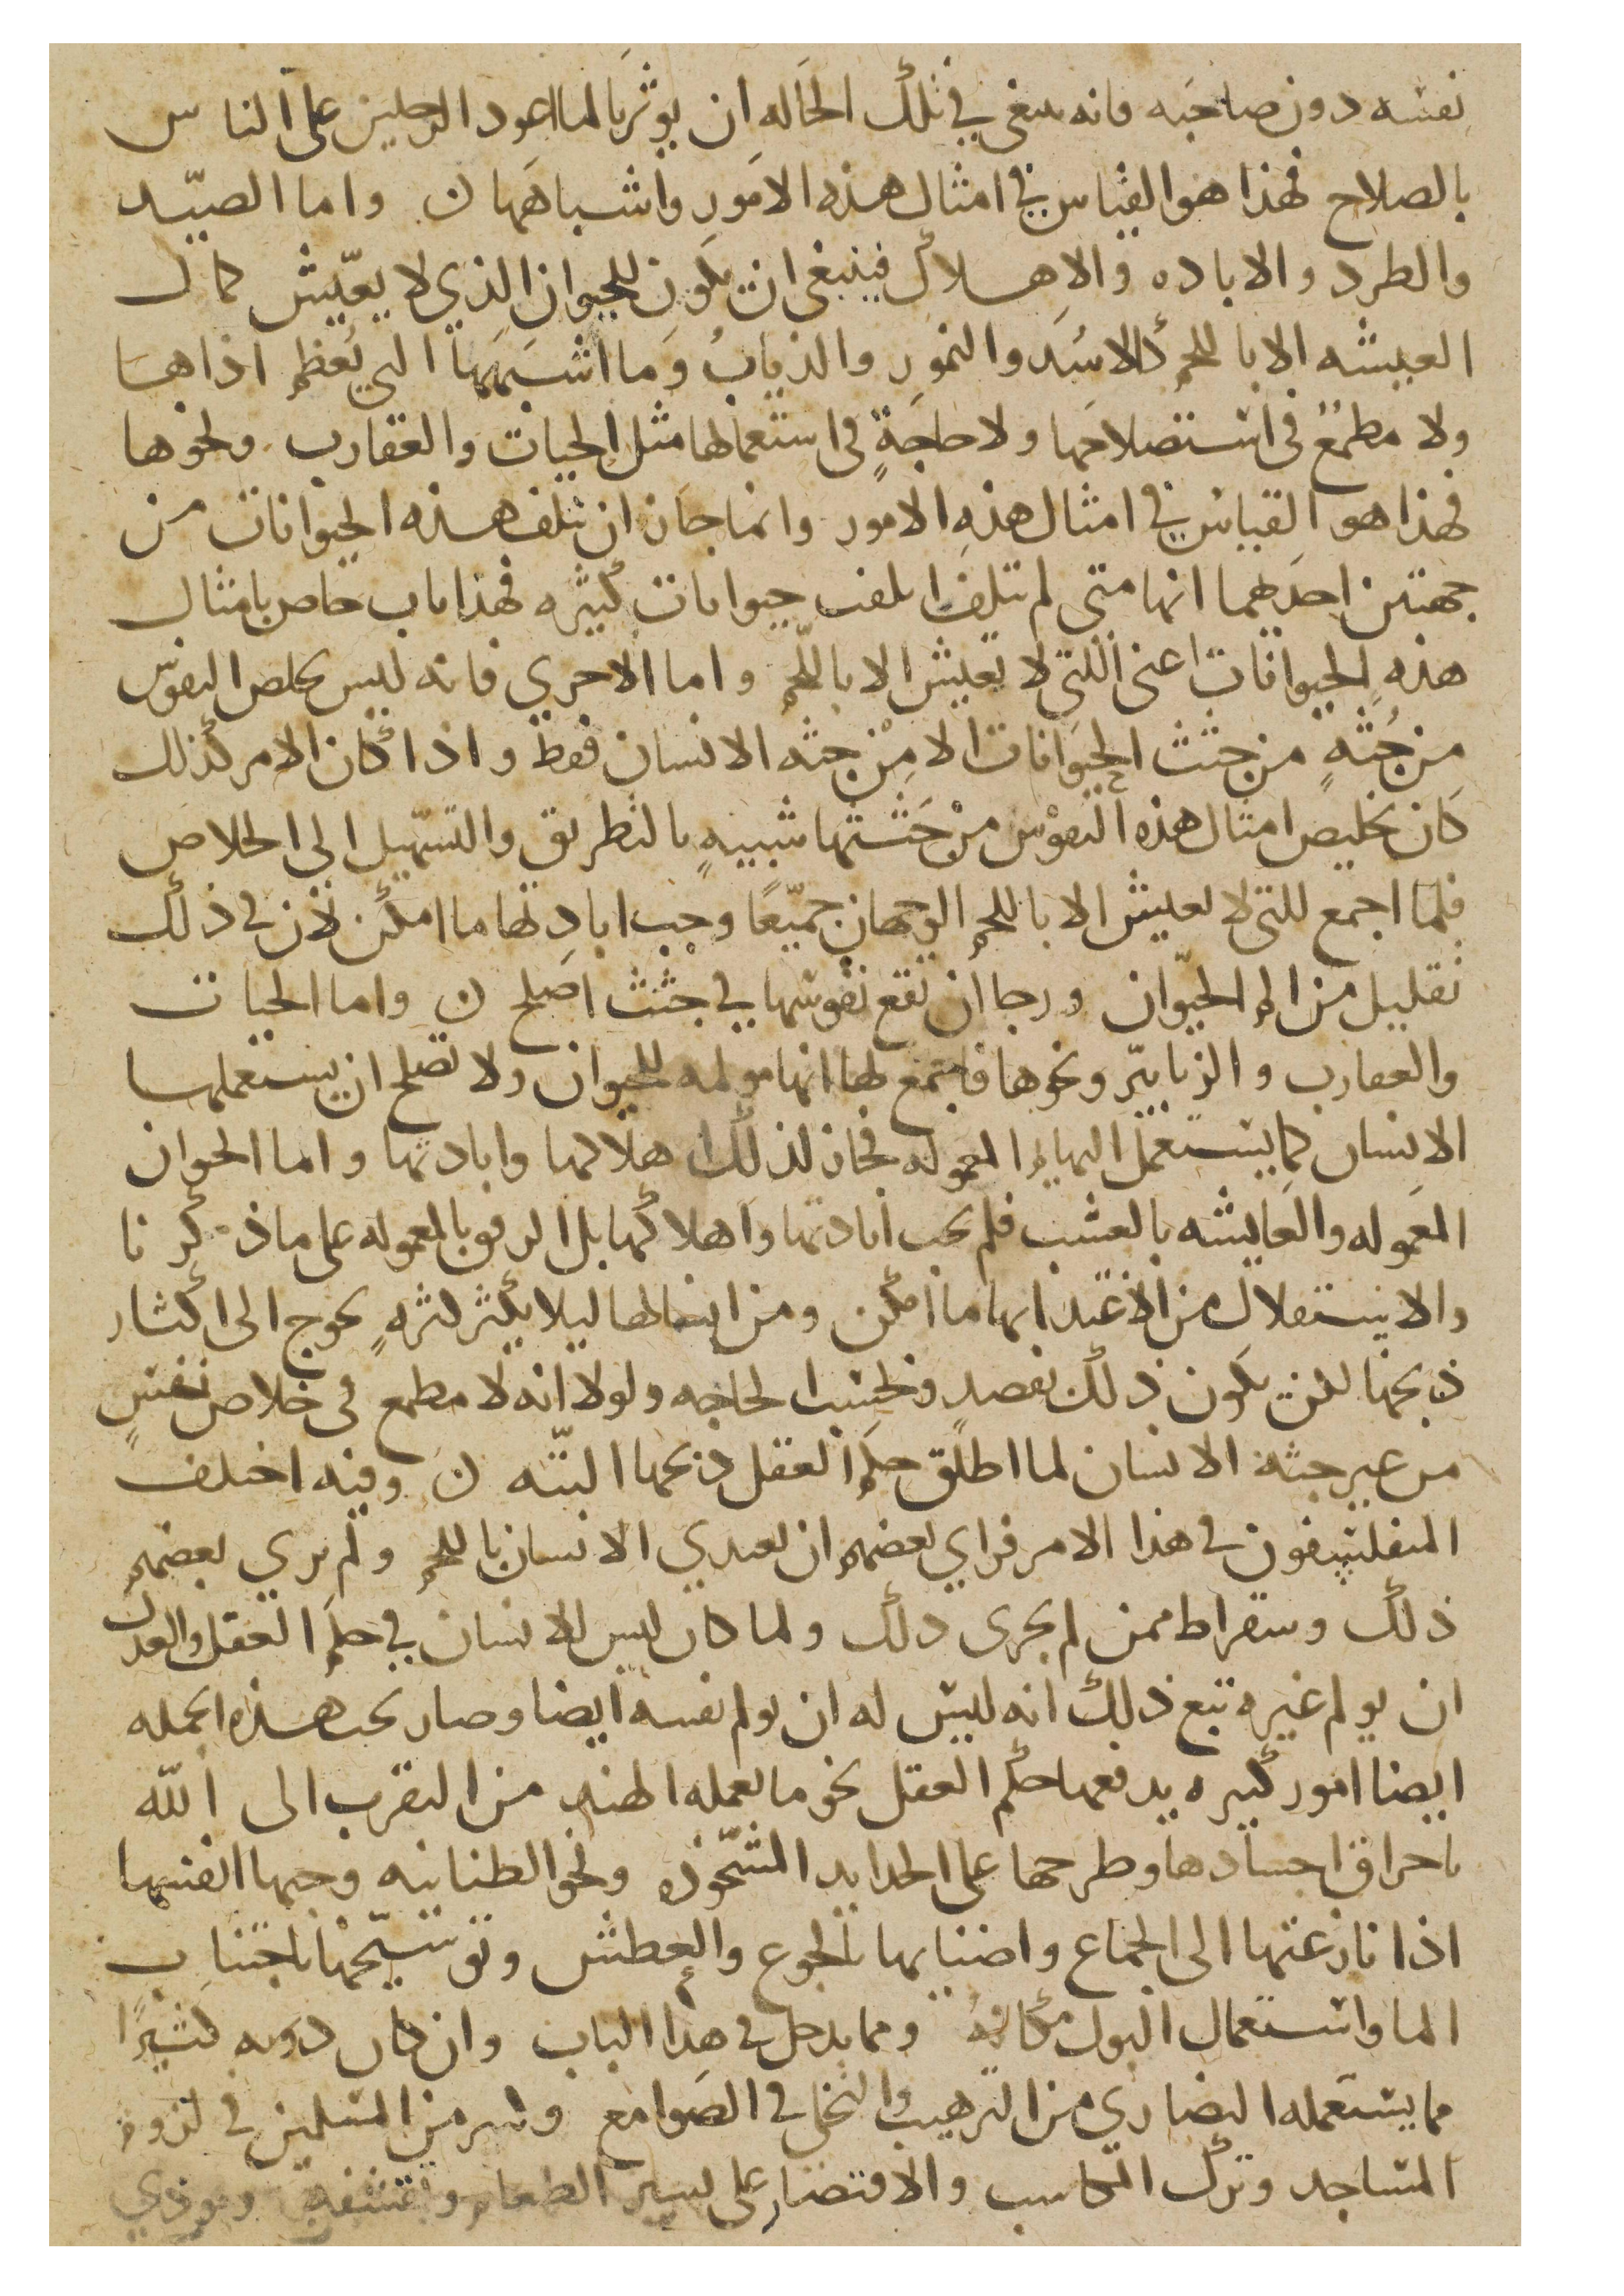 نفسه دون صاحبه فانه ينبغي في تلك الحاله ان يوثر بالما اعود الرجلين على الناس
بالصلاح فهذا هو القياس في امثال هذه الامور واشباهها ن واما الصيد
والطرد والاباده والاهلاك فينبغي ان يكون للحيوان الذي لا يعيش كمال
العيشه الا باللحم كالاسد والنمور والذياب وما اشبهها التي يعظم اذاها
ولا مطمع في استصلاحها ولا حاجة في استعمالها مثل الحيات والعقارب ونحوها
فهذا هو القياس في امثال هذه الامور وانما جاز ان تتلف هذه الحيوانات من
جهتين احدهما انها متى لم تتلف اتلفت حيوانات كثيره فهذا باب خاص بامثال
هذه الحيوانات اعني اللتي لا تعيش الا باللحم واما الاخري فانه ليس تخلص النفوس
من جثة من جثث الحيوانات الا من جثه الانسان فقط واذا كان الامر كذلك
كان تخليص امثال هذه النفوس من جثتها شبيه بالتطريق والتسهيل الى الخلاص
فلما اجمع للتي لا تعيش الا باللحم الوجهان جميعا وجب ابادتها ما امكن لان في ذلك
تقليل من الم الحيوان ورجا ان تقع نفوسها في جثث اصلح ن واما الحيات
والعقارب والزنابير ونحوها فاجتمع لها انها مولمه للحيوان ولا تصلح ان يستعملها
الانسان كما يستعمل البهايم المعموله فجاز لذلك اهلاكها وابادتها واما الحيوان
المعموله والعايشه بالعشب فلم يجب ابادتها واهلاكها بل الرفق بالمعموله على ما ذكرنا
والاستقلال من الاغتدا بها ما امكن ومن انسالها ليلا يكثر كثرة يحوج الى اكثار
ذبحها لكن يكون ذلك بقصد وبحسب الحاجه ولولا انه لا مطمع في خلاص نفس
من غير جثة الانسان لما اطلق حكم العقل ذبحها البته ن وفيه اختلف
المتفلسفون في هذا الامر فراي بعضهم ان يعتدي الانسان باللحم ولم يري بعضهم
ذلك وسقراط ممن لم يجري ذلك ولما كان ليس للانسان في حكم العقل والعدل
ان يولم غيره تبع ذلك انه ليس له ان يولم نفسه ايضا وصار تحت هذه الجمله
ايضا امور كثيره يدفعها حكم العقل نحو ما يعمله الهند من التقرب الى الله
باحراق اجسادها وطرحها على الحدايد المشحوذه ونحو المنانيه وجبها انفسها
اذا نازعتها الى الجماع واضنايها بالجوع والعطش وتوسيخها باجتناب
الما واستعمال البول مكانه ومما يدخل في هذا الباب وان كان دونه كثيرا
ما يستعمله النصاري من الترهب والتخلي في الصوامع وكثير من المسلمين في لزوم
المساجد وترك المكاسب والاقتصار على يسير الطعام وبشعه وموذي